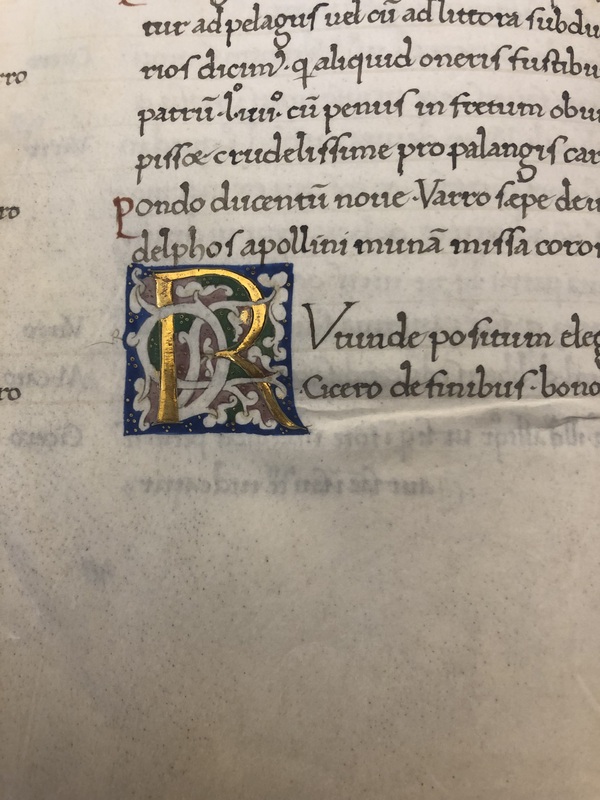 tur ad pelagus uel cū ad littora subdu
rios dicim᷒. q aliquid oneris fustibu
rro
patrū .l.iiii. cū penus in fretum obui
pissæ crudelissime pro palangis car
Pondo ducentū noue. Varro sæpe deu
ro
delphos apollini munā missa coron
R Vtunde positum eleg
Cicero de finibus. bono
ro